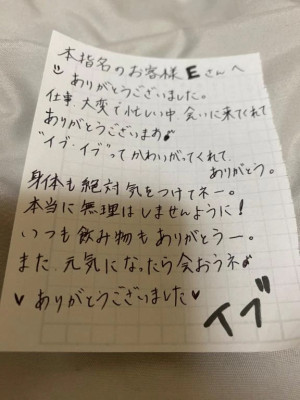 本指名のお客様Eさんへ
ありがとうございました。
仕事、大変で忙しい中、会いに来てくれて
ありがとうございます♪
"イブ・イブ"ってかわいがってくれて
ありがとう。
身体も絶対気をつけてネー。
本当に無理はしませんように!
いつも飲み物もありがとうー。
また、元気になったら会おうネ♪
♥ありがとうございました♥
イブ